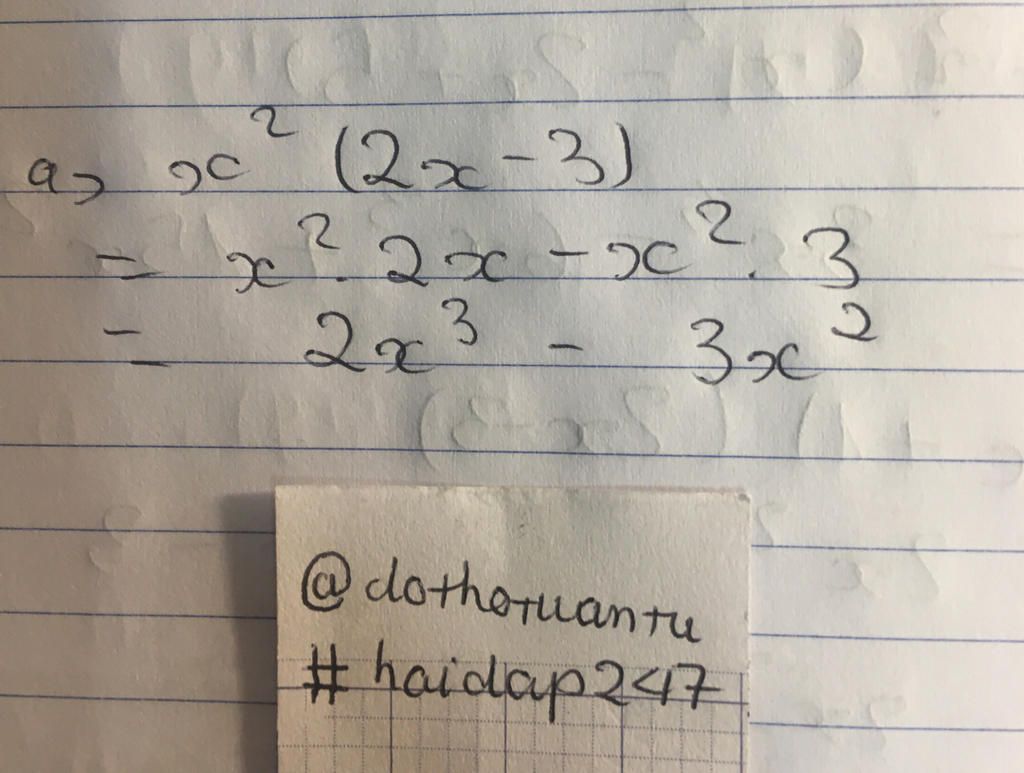 a, x² (2x - 3)
= x² . 2x - x² . 3
= 2x³ - 3x²
@dothotuantu
#haidap247